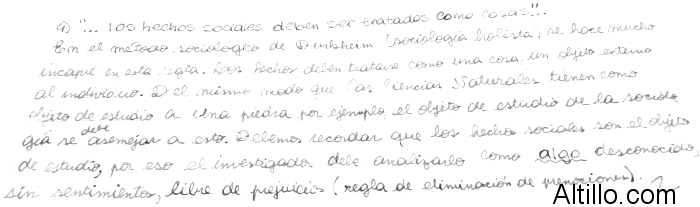 4) "... los hechos sociales deben ser tratados como cosas"...
En el método sociológico de Durkheim (sociología holista) se hace mucho
incapié en esta regla. Los hechos deben tratarse como una cosa, un objeto externo
al individuo. Del mismo modo que las Ciencias Naturales tienen como
objeto de estudio a una piedra por ejemplo, el objeto de estudio de la sociolo
gía se debe asemejar a esto. Debemos recordar que los hechos sociales son el objeto
de estudio, por eso el investigador debe analizarlo como algo desconocido,
sin sentimientos, libre de prejuicios (regla de eliminación de prenociones).
Altillo.com